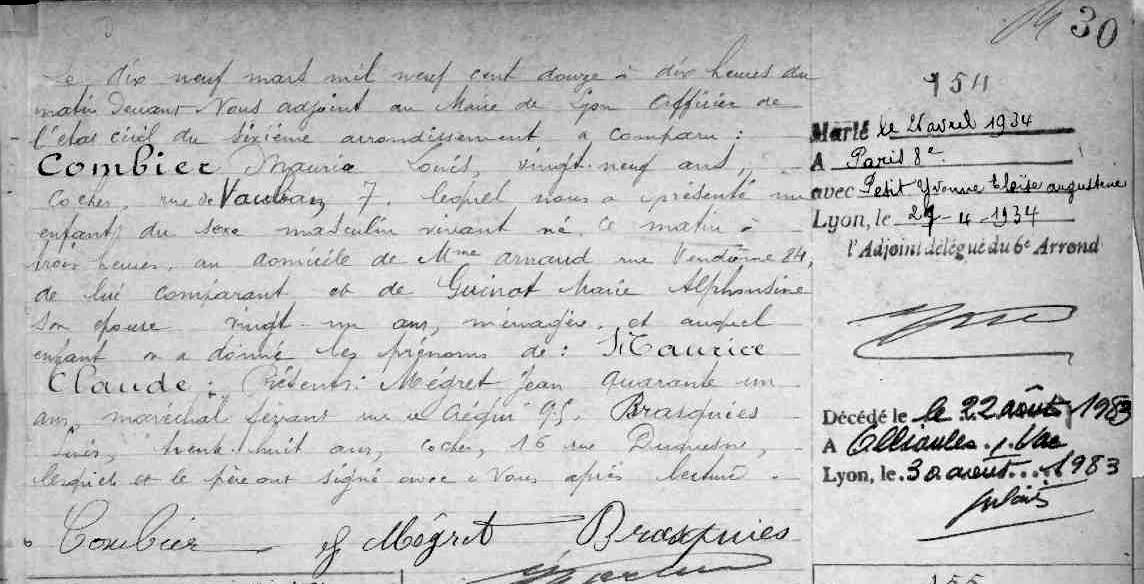 30
Le dix neuf mars mil neuf cent douze à dix heures du
matin devant Nous adjoint au Maire de Lyon Officier de
l'état civil du sixième arrondissement a comparu :
Combier Maurice Louis, vingt-neuf ans,
Cocher, rue de Vauban, 7. lequel nous a présenté un
enfant du sexe masculin vivant né, ce matin à
trois heures, au domicile de Mme Arnaud rue Vendôme 24,
de lui comparant et de Guinot Marie Alphonsine
son épouse vingt-un ans, ménagère, et auquel
enfant on a donné les prénoms de : Maurice
Claude : Présents : Mégret Jean quarante un
ans, maréchal ferrant rue de Créqui 95. Brasquies
Louis, trente-huit ans, cocher, 16 rue Duquesne,
lesquels et le père ont signé avec Nous après lecture.
Combier
J Mégret
Brasquies
754
Marié le 21 avril 1934
A Paris 8e
avec Petit Yvonne Eloïse augustine
Lyon, le 27-4-1934
l'Adjoint délégué du 6e Arrond
Décédé le le 22 août 1983
A Ollioules, Var
Lyon, le 30 août 1983
155